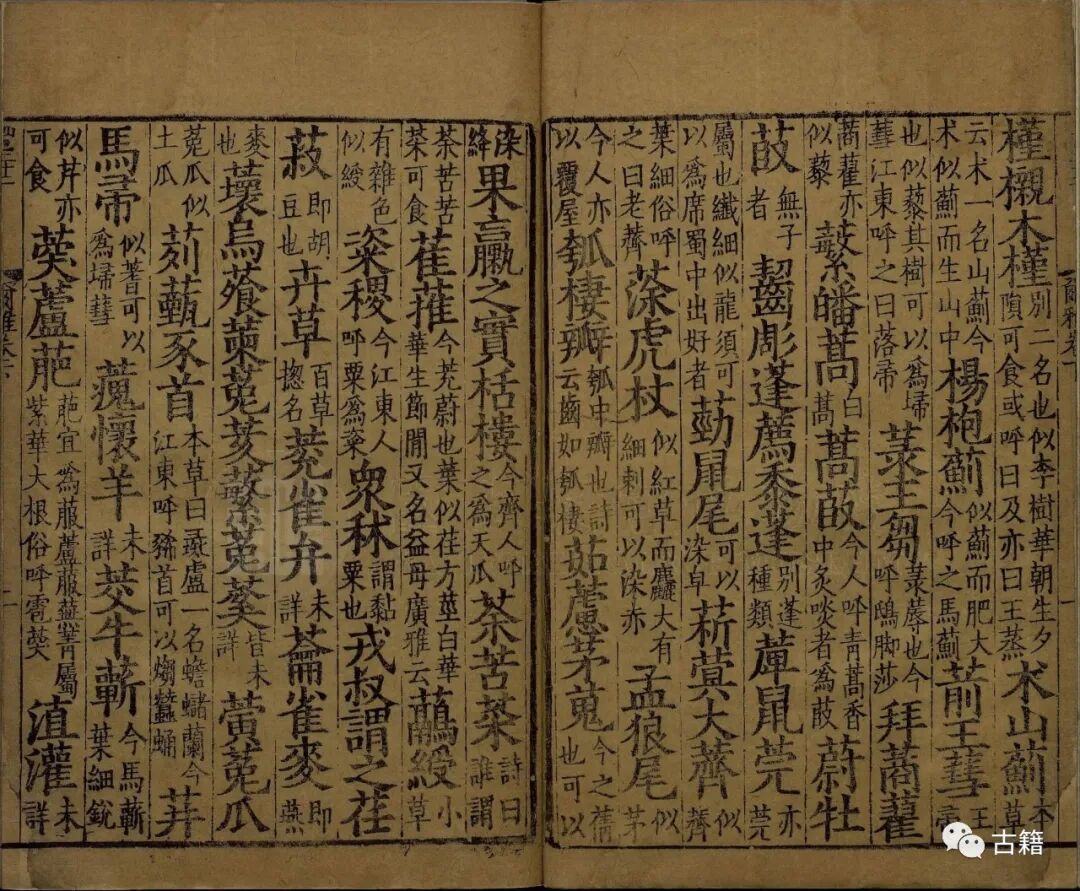 槿櫬木槿別二名也似李樹華朝生夕隕可食或呼日及亦曰王蒸朮山薊本草
云朮一名山薊今朮似薊而生山中楊枹薊似薊而肥大今呼之馬薊葥王蔧王帚
也似藜其樹可以爲埽蔧江東呼之曰落帚菉王芻菉蓐也今呼鴟脚莎拜蔏藋
蔏藋亦似藜蘩皤蒿白蒿蒿菣今人呼青蒿香中炙啖者爲菣蔚牡
菣無子者齧彫蓬薦黍蓬別蓬種類萆鼠莞亦莞
屬也纖細似龍須可以爲席蜀中出好者葝鼠尾可以染草菥蓂大薺似薺
葉細俗呼之曰老薺蒤虎杖似紅草而麤大有細刺可以染亦孟狼尾似茅
今人亦以覆屋瓠棲瓣瓠中瓣也詩云齒如瓠棲茹藘茅蒐今之蒨也可以
染絳果臝之實栝樓今齊人呼之爲天瓜荼苦菜詩曰誰謂
荼苦苦菜可食萑蓷今茺蔚也葉似荏方莖白華華生節間又名益母廣雅云虉綬小草
有雜色似綬粢稷今江東人呼粟爲粢衆秫謂黏粟也戎叔謂之荏
菽即胡豆也卉草百草揔名蒄雀弁未詳蘥雀麥即燕
麥也蘾烏薞萰菟荄蘩菟蒵皆未詳黃菟瓜
菟瓜似土瓜茢薽豕首本草曰彘盧一名蟾蠩蘭今江東呼豨首可以煼蠶蛹荓
馬帚似蓍可以爲埽彗藱懷羊未詳茭牛蘄今馬蘄葉細銳
似芹亦可食葖蘆萉萉宜爲菔蘆菔蕪菁屬紫華大根俗呼雹葖淔灌未詳
古籍